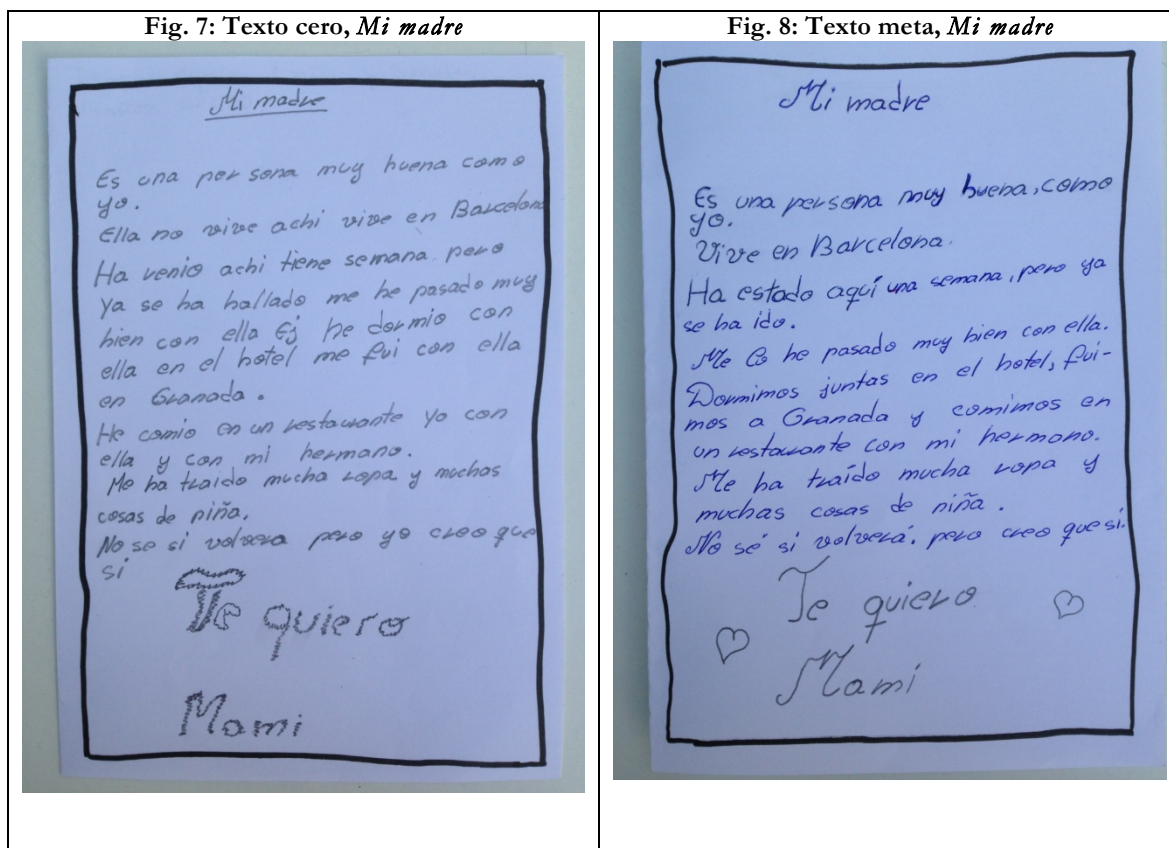 Fig. 7: Texto cero, Mi madre
Mi madre
Es una persona muy buena como
yo.
Ella no vive achi vive en Barcelona
Ha venio achi tiene semana pero
ya se ha hallado me he pasado muy
bien con ella Ej he dormio con
ella en el hotel me fui con ella
en Granada.
He comio en un restaurante yo con
ella y con mi hermano.
Me ha traido mucha ropa y muchas
cosas de niña.
No se si volvera pero yo creo que
si
Te quiero
Mami
Fig. 8: Texto meta, Mi madre
Mi madre
Es una persona muy buena, como
yo.
Vive en Barcelona.
Ha estado aquí una semana, pero ya
se ha ido.
Me lo he pasado muy bien con ella.
Dormimos juntas en el hotel, fui-
mos a Granada y comimos en
un restaurante con mi hermano.
Me ha traído mucha ropa y
muchas cosas de niña.
No sé si volverá, pero creo que si.
Te quiero
Mami